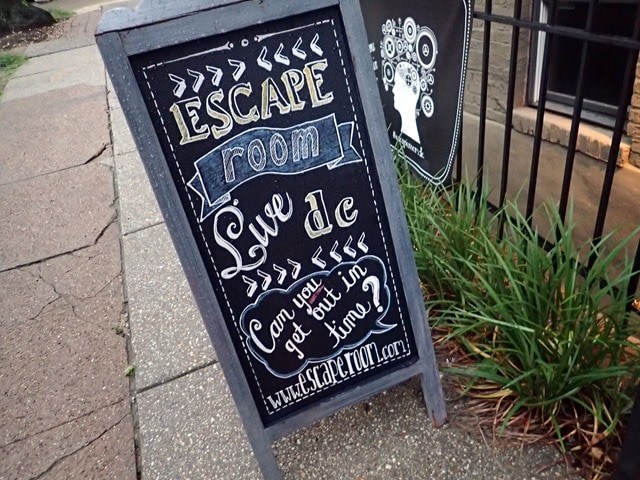 ESCAPE
room
Live dc
Can you
get out in
time?
www.escaperoom.com